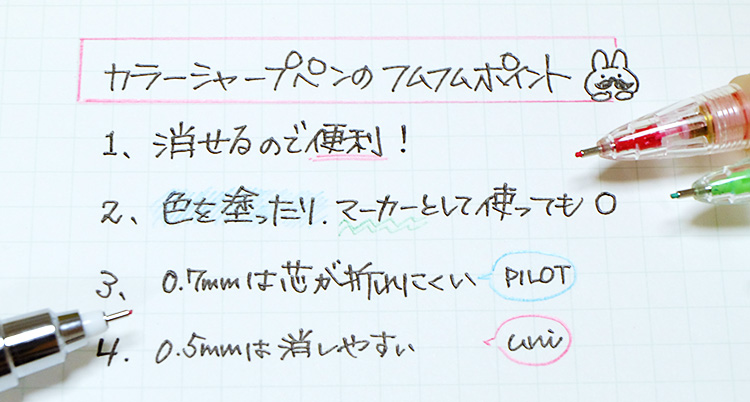 カラーシャープペンのフムフムポイント
1、消せるので便利！
2、色を塗ったり、マーカーとして使っても○
3、0.7mmは芯が折れにくい PILOT
4、0.5mmは消しやすい uni